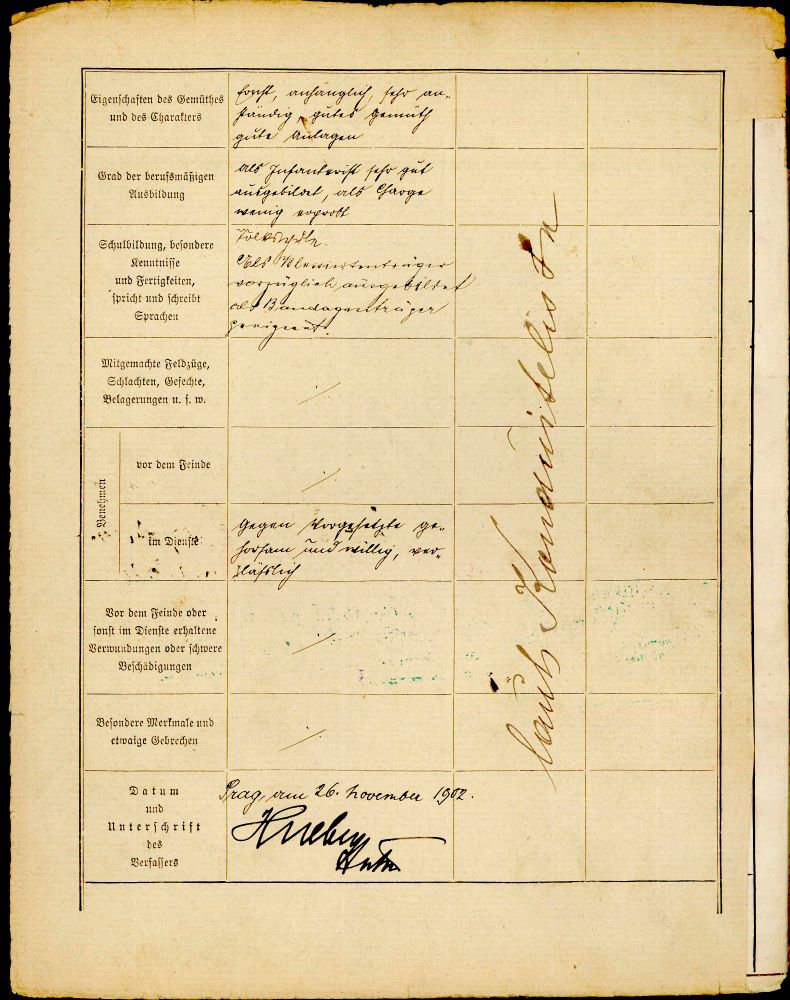 Eigenschaften des Gemüthes
und des Charakters
Ernst, anhänglich, sehr an-
ständig, gutes Gemüth
gute Anlagen
Grad der berufsmäßigen
Ausbildung
als Infanterist sehr gut
ausgebildet, als Charge
wenig erprobt
Schulbildung, besondere
Kenntnisse
und Fertigkeiten,
spricht und schreibt
Sprachen
Volksschule.
Als Blessirtenträger
vorzüglich ausgebildet
als Bandagenträger
geeignet.
Mitgemachte Feldzüge,
Schlachten, Gefechte,
Belagerungen u. s. w.
Benehmen
vor dem Feinde
im Dienste
Gegen Vorgesetzte ge-
horsam und willig, ver-
läßlich
Vor dem Feinde oder
sonst im Dienste erhaltene
Verwundungen oder schwere
Beschädigungen
Besondere Merkmale und
etwaige Gebrechen
Datum
und
Unterschrift
des
Verfassers
Prag, am 26. November 1902.
laut